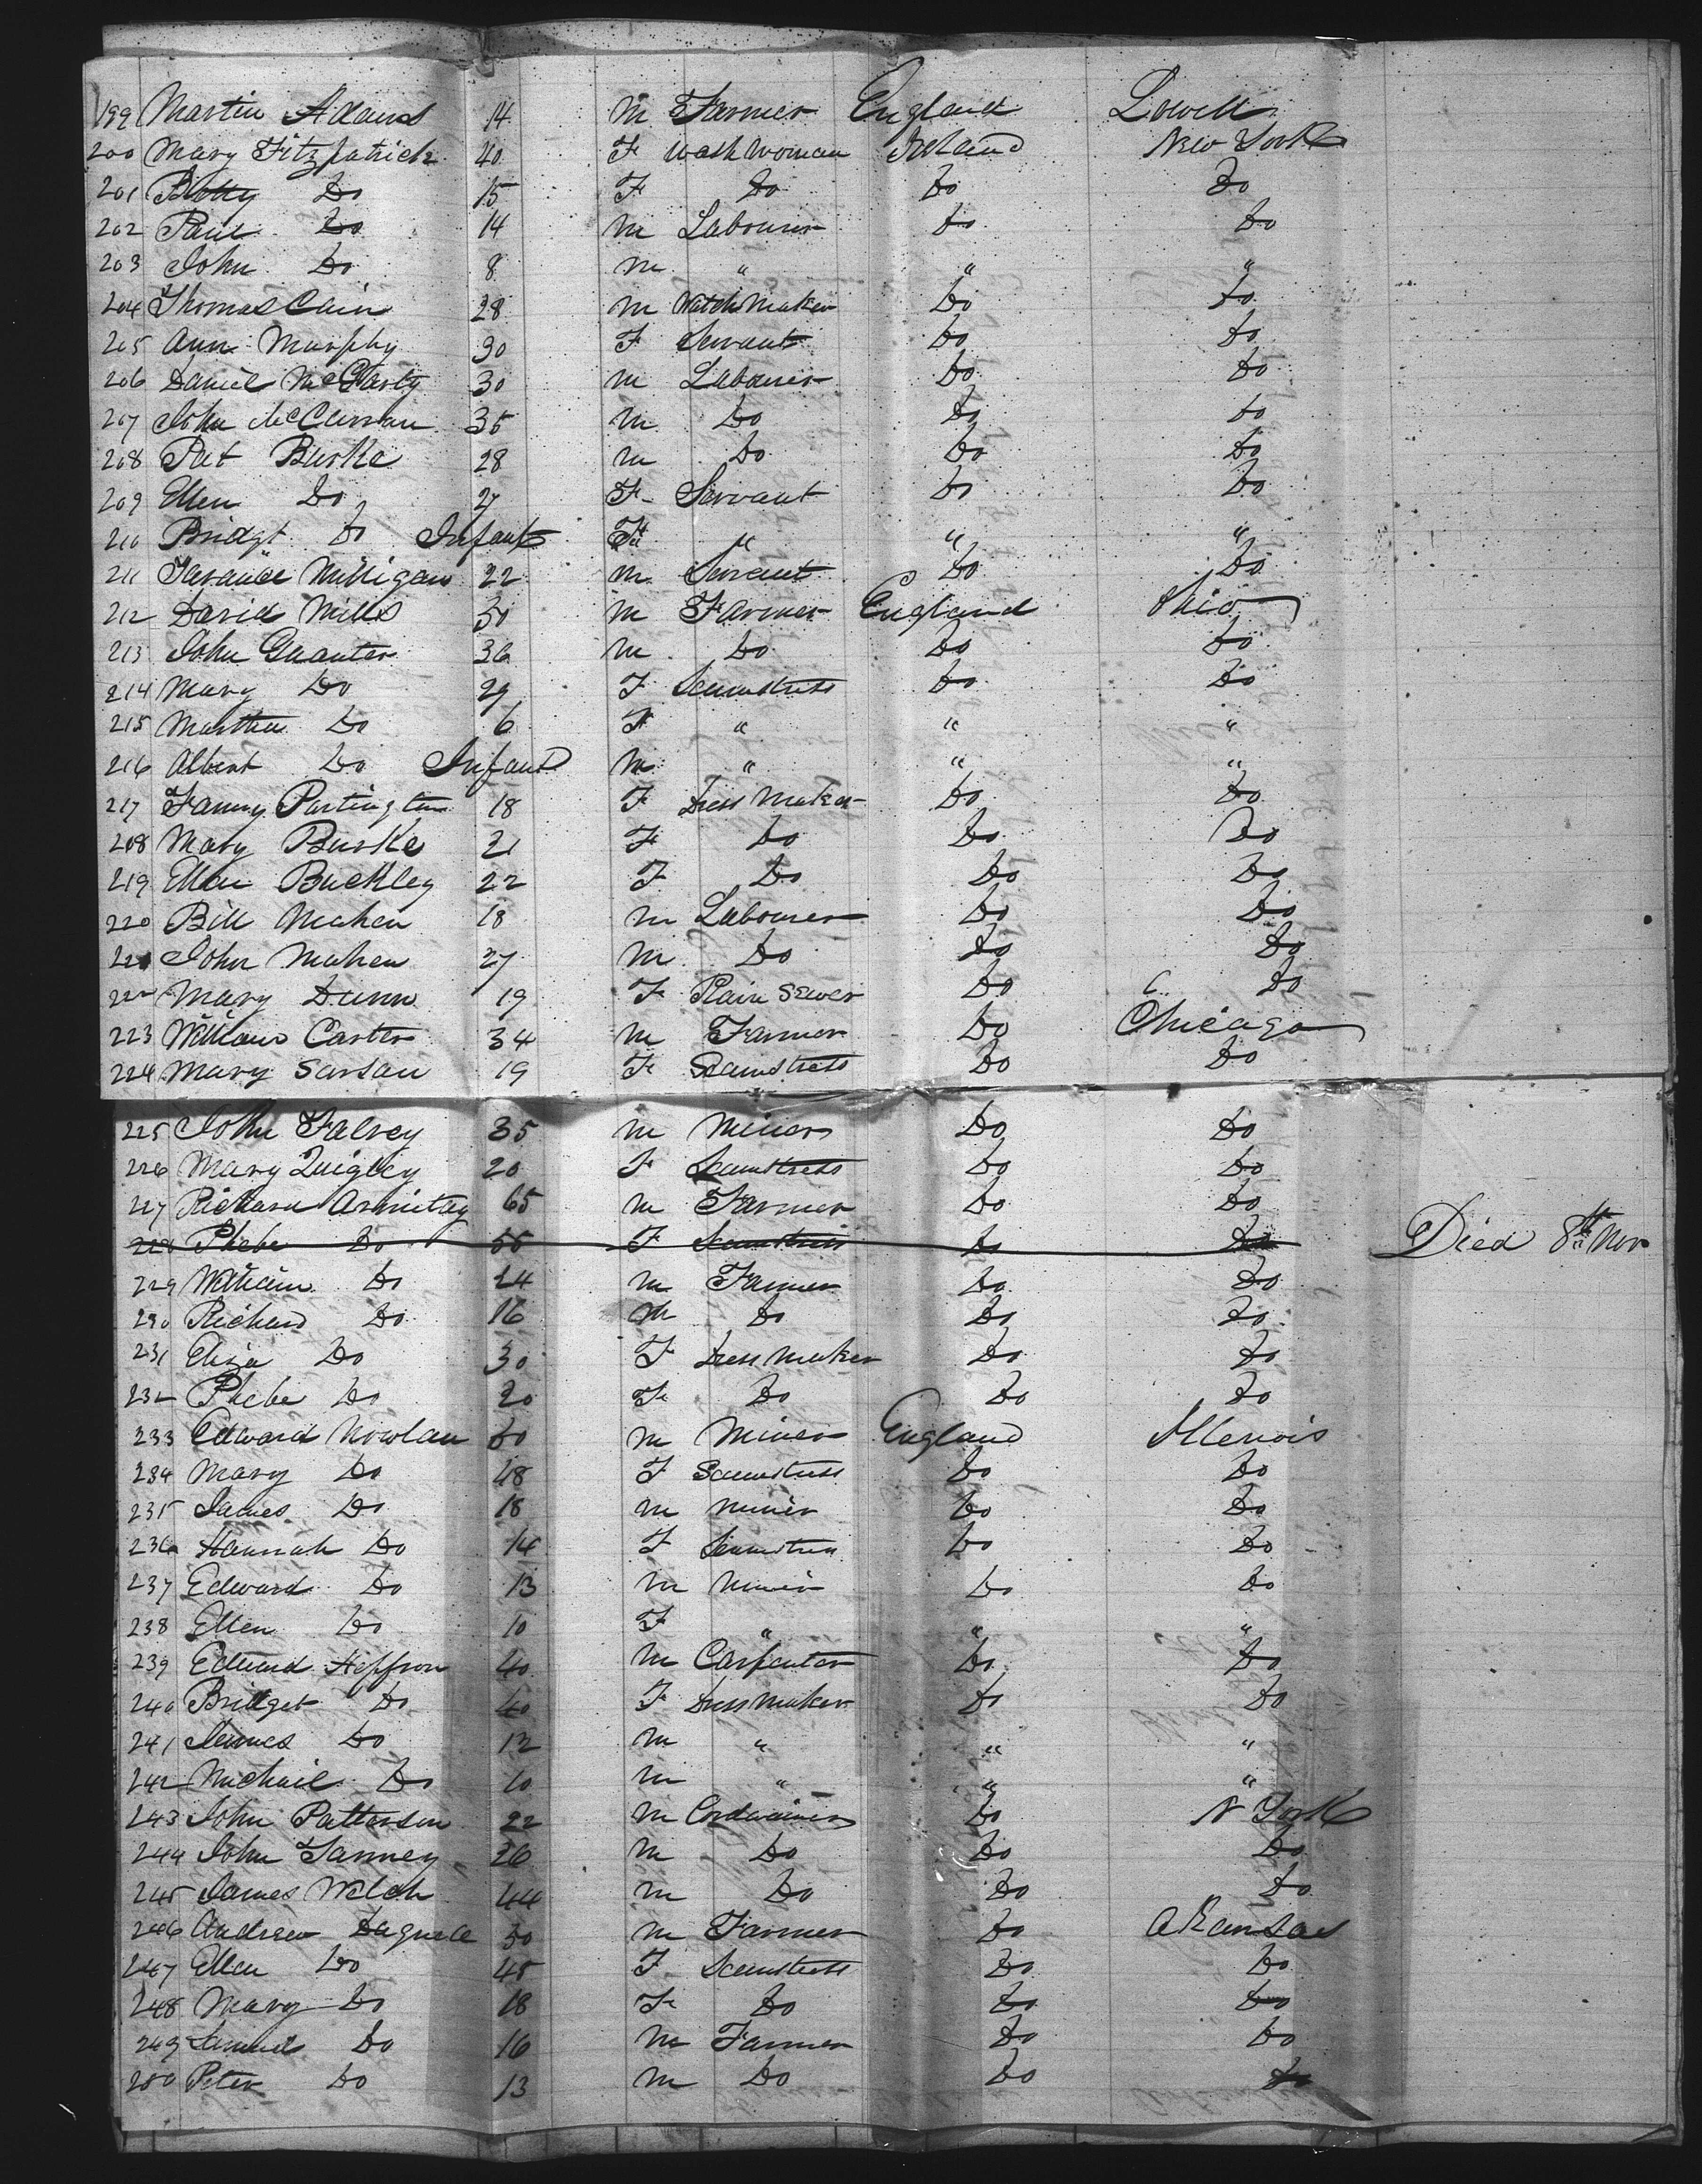 199 Martin Adams 14 M Farmer England Lowell
200 Mary Fitzpatrick 40 F Wash Woman Ireland New York
201 Betty Do 15 F Do Do Do
202 Paul Do 14 M Labourer Do Do
203 John Do 8 M " " "
204 Thomas Cain 28 M Watch Maker Do Do
205 Ann Murphy 30 F Servant Do Do
206 Daniel McCarty 30 M Labourer Do Do
207 John McCurran 35 M Do Do Do
208 Pat Burke 28 M Do Do Do
209 Ellen Do 27 F Servant Do Do
210 Bridgt Do Infant F " " "
211 Milligan 22 M Servant Do Do
212 David Mills 50 M Farmer England Ohio
213 John Guanter 36 M Do Do Do
214 Mary Do 29 F Seamstress Do Do
215 Martha Do 6 F " " "
216 Albert Do Infant M " " "
217 Fanny Partington 18 F Dress Maker Do Do
208 Mary Burke 21 F Do Do Do
219 Ellen Buckley 22 F Do Do Do
220 Bill Mahen 18 M Labourer Do Do
221 John Mahen 27 M Do Do Do
222 Mary Dunn 19 F Plain Sewer Do Do
223 William Carter 34 M Farmer Do Chicago
224 Mary Sarsau 19 F Seamstress Do Do
225 John Falvey 35 M Miner Do Do
226 Mary Quigley 20 F Seamstress Do Do
227 Richard Armitag 65 M Farmer Do Do
228 Phebe Do 55 F Seamstress Do Do Died 8th Nov
229 William Do 24 M Farmer Do Do
230 Richard Do 16 M Do Do Do
231 Eliza Do 30 F Dress Maker Do Do
232 Phebe Do 20 F Do Do Do
233 Edward Nowlan 50 M Miner England Illenois
234 Mary Do 48 F Seamstress Do Do
235 James Do 18 M Miner Do Do
236 Hannah Do 14 F Seamstress Do Do
237 Edward Do 13 M Miner Do Do
238 Ellen Do 10 F " " "
239 Edward Heffron 40 M Carpenter Do Do
240 Bridget Do 40 F Dress Maker Do Do
241 James Do 12 M " " "
242 Michail Do 10 M " " "
243 John Patterson 22 M Cordwainer Do N York
244 John Tanney 26 M Do Do Do
245 James Welch 44 M Do Do Do
246 Andrew 50 M Farmer Do Akansas
247 Ellen Do 45 F Seamstress Do Do
248 Mary Do 18 F Do Do Do
249 Samuel Do 16 M Farmer Do Do
250 Peter Do 13 M Do Do Do